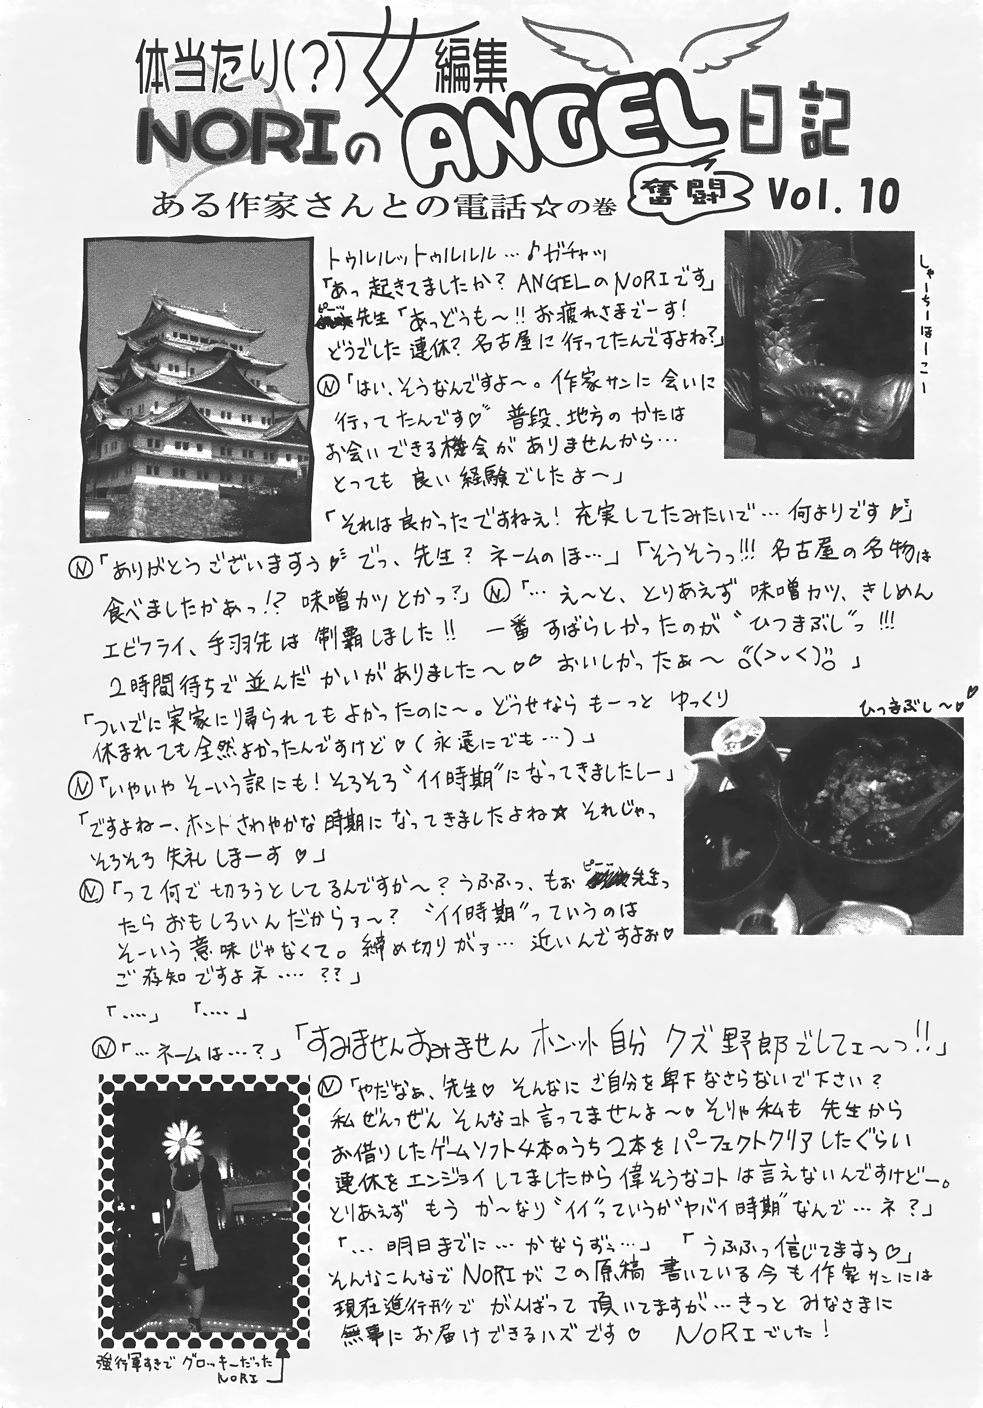 体当たり(?)女編集
NORIのANGEL日記
奮闘
Vol. 10
ある作家さんとの電話☆の巻
トゥルルットゥルルル…♪ガチャッ
「あっ起きてましたか? ANGELのNORIです」
ピーッ
先生「あっどうも〜!! お疲れさまでーす!
どうでした連休? 名古屋に行ってたんですよね?」
Ⓝ「はい、そうなんですよ〜。作家サンに会いに
行ってたんです♡” 普段、地方のかたは
お会いできる機会がありませんから…
とっても良い経験でしたよ〜」
「それは良かったですねえ! 充実してたみたいで…何よりです♡」
しゃーちーほーこー
Ⓝ「ありがとうございますぅ♡ でっ、先生? ネームのほ…」「そうそうっ!!! 名古屋の名物は
食べましたかあっ!? 味噌カツとかっ?」Ⓝ「…え〜と、とりあえず味噌カツ、きしめん
エビフライ、手羽先は制覇しました!! 一番すばらしかったのが“ひつまぶし”っ!!!
2時間待ちで並んだかいがありました〜♡♡ おいしかったぁ〜 o(>ᴗ<)o 」
「ついでに実家に帰られてもよかったのに〜。どうせならもーっとゆっくり
休まれても全然よかったんですけど♡(永遠にでも…)」
ひつまぶし〜♡♡
Ⓝ「いやいやそーいう訳にも! そろそろ“イイ時期”になってきましたしー」
「ですよねー、ホントさわやかな時期になってきましたよね★ それじゃっ
そろそろ失礼しまーす♡」
Ⓝ「って何で切ろうとしてるんですか〜? うふふっ、もぉ ピーッ 先生っ
たらおもしろいんだからァ〜? “イイ時期”っていうのは
そーいう意味じゃなくて。締め切りがァ…近いんですよぉ♡
ご存知ですよネ‥‥??」
「‥‥」 「‥‥」
Ⓝ「…ネームは…?」「すみませんすみませんホンット自分クズ野郎でしてェ〜っ!!」
Ⓝ「やだなぁ、先生♡ そんなにご自分を卑下なさらないで下さい?
私ぜんっぜんそんなコト言ってませんよ〜♡ そりゃ私も先生から
お借りしたゲームソフト4本のうち2本をパーフェクトクリアしたぐらい
連休をエンジョイしてましたから偉そうなコトは言えないんですけどー。
とりあえずもうか〜なり“イイ”っていうか“ヤバイ時期”なんで…ネ?」
「…明日までに…かならずぅ…」 「うふふっ信じてますぅ♡」
そんなこんなでNORIがこの原稿書いている今も作家サンには
現在進行形でがんばって頂いてますが…きっとみなさまに
無事にお届けできるハズです♡ NORIでした!
強行軍すぎでグロッキーだった
NORI